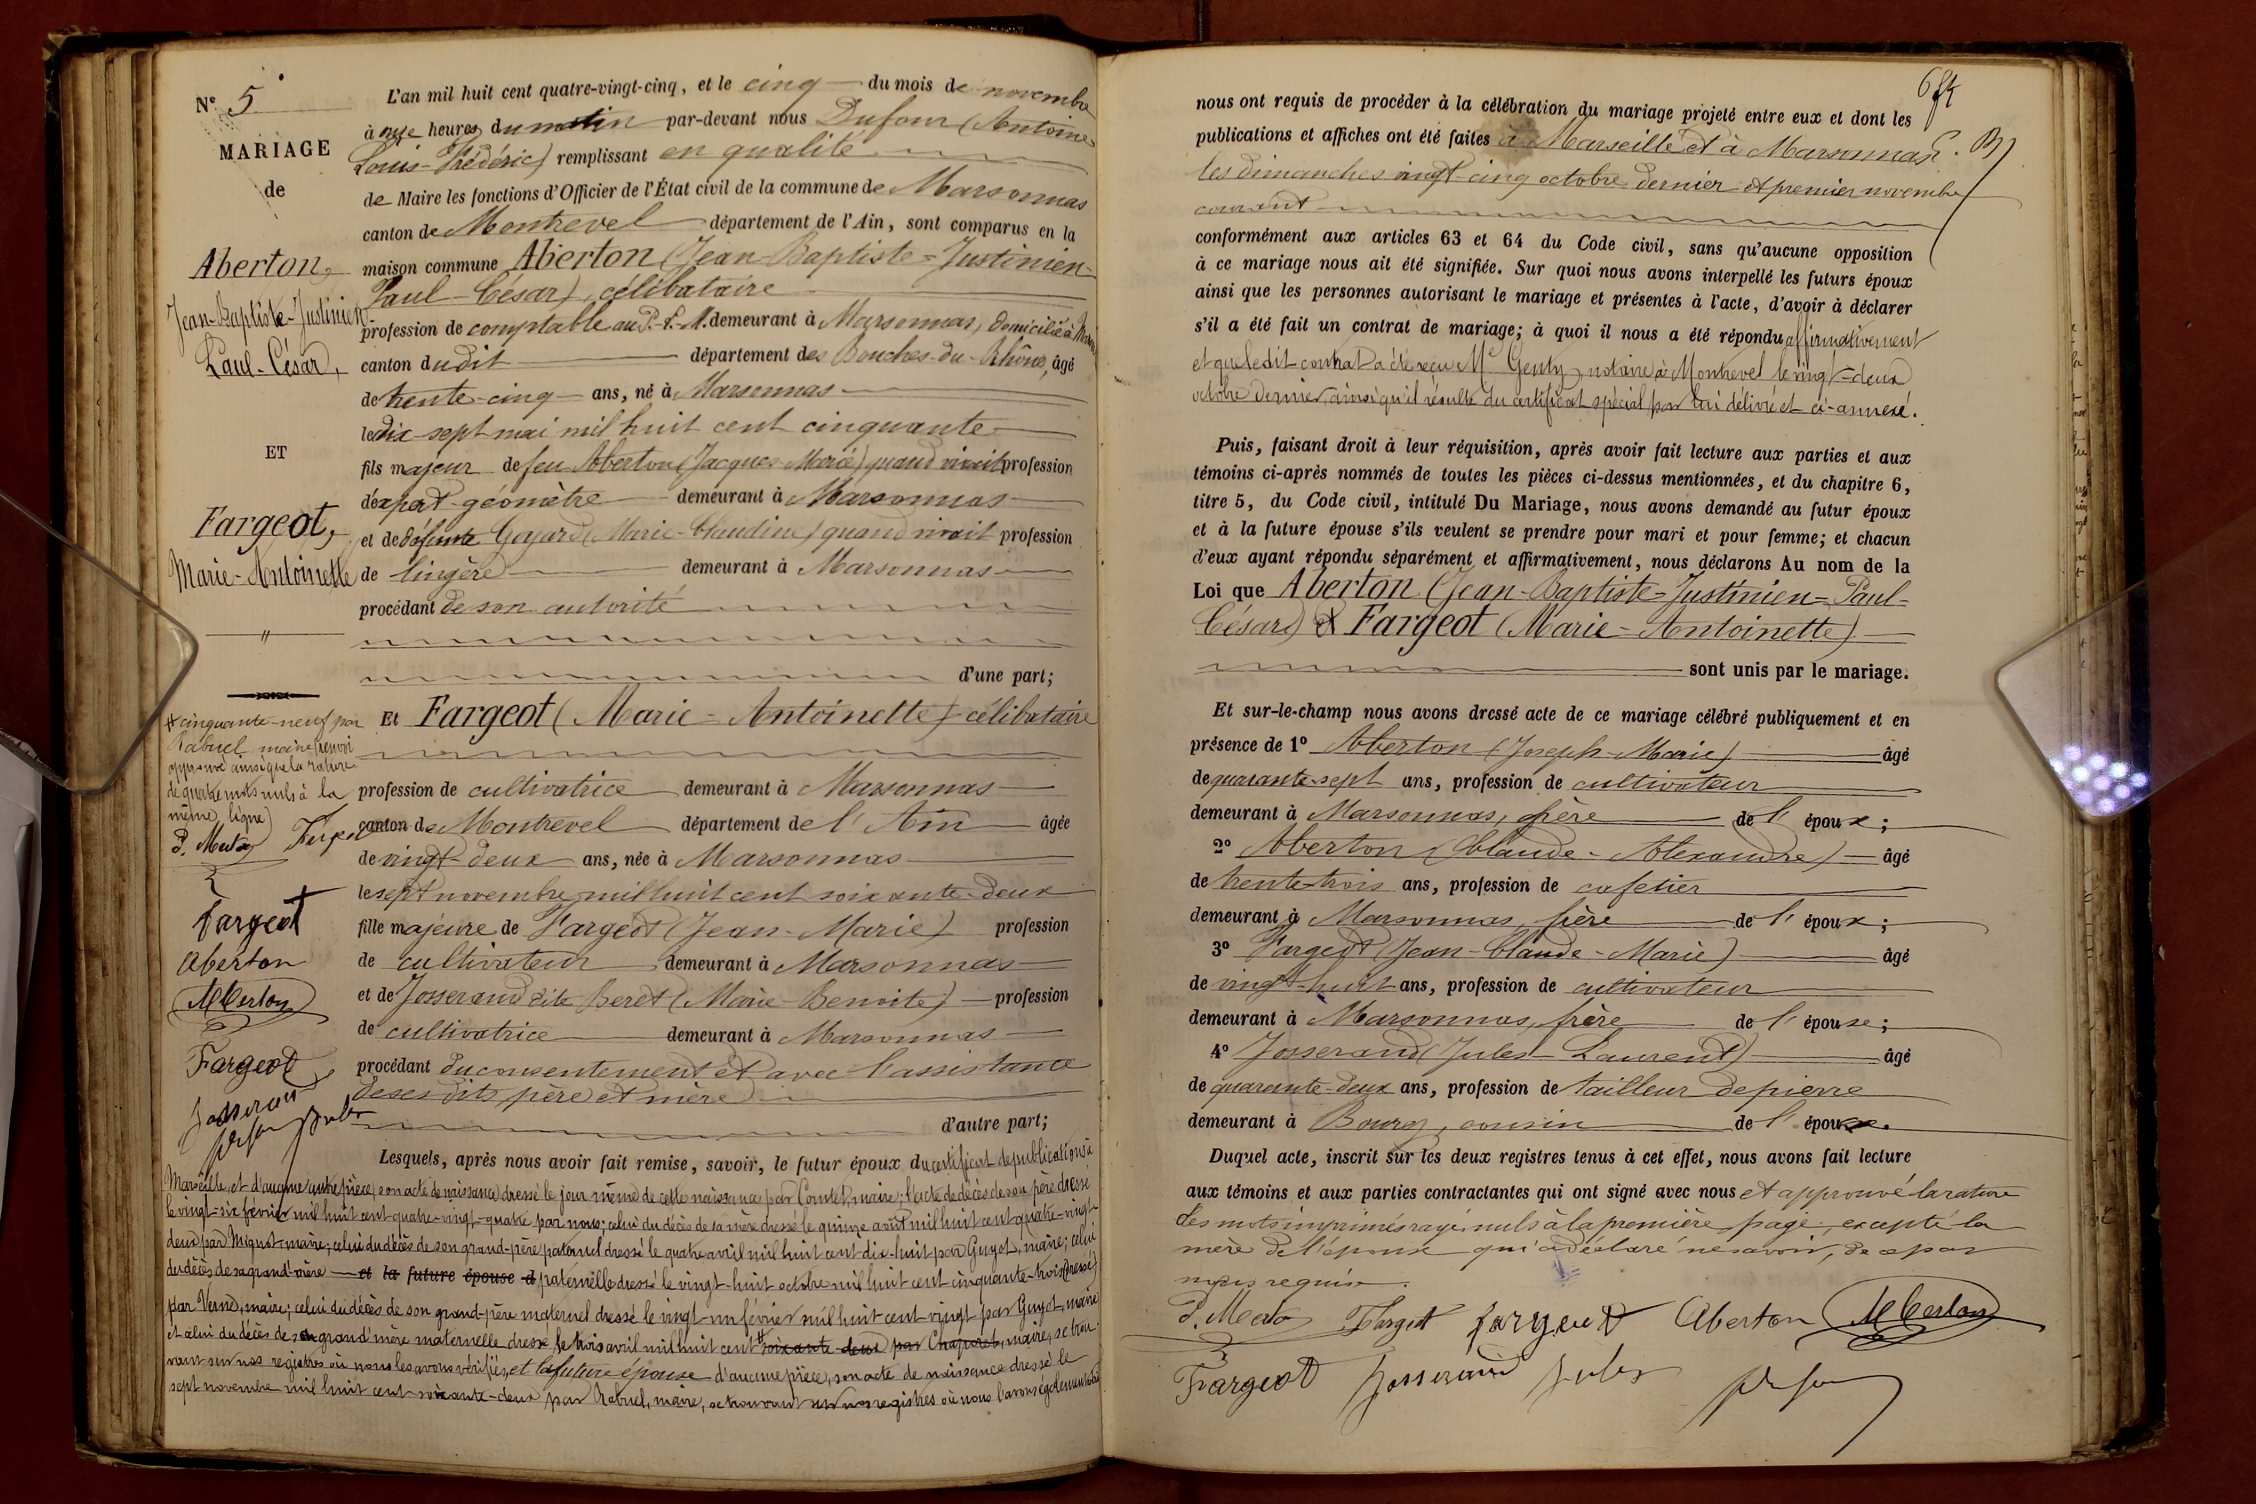 N° 5
MARIAGE
de
Aberton,
Jean-Baptiste-Justinien
Paul-César,
ET
Fargeot,
Marie-Antoinette
L'an mil huit cent quatre-vingt-cinq, et le cinq du mois de novembre
à onze heures du matin par-devant nous Dufour (Antoine
Louis-Frédéric) remplissant en qualité
de Maire les fonctions d'Officier de l'État civil de la commune de Marsonnas
canton de Montrevel département de l'Ain, sont comparus en la
maison commune Aberton (Jean-Baptiste=Justinien-
Paul-César), célibataire
profession de comptable au P.-L.-M. demeurant à Marsonnas, domicilié à
canton dudit département des Bouches-du-Rhône, âgé
de trente-cinq ans, né à Marsonnas
le dix-sept mai mil huit cent cinquante
fils majeur de feu Aberton (Jacques Marie) quand vivait profession
d'expert-géomètre demeurant à Marsonnas
et de défunte Goyard (Marie-Claudine) quand vivait profession
de lingère demeurant à Marsonnas
procédant de son autorité
d'une part;
Et Fargeot (Marie-Antoinette) célibataire
profession de cultivatrice demeurant à Marsonnas
canton de Montrevel département de l'Ain âgée
de vingt-deux ans, née à Marsonnas
le sept novembre mil huit cent soixante-deux
fille majeure de Fargeot (Jean-Marie) profession
de cultivateur demeurant à Marsonnas
et de Josserand dite Beret (Marie-Benoite) profession
de cultivatrice demeurant à Marsonnas
procédant du consentement et avec l'assistance
de ses dits père et mère
d'autre part;
Lesquels, après nous avoir fait remise, savoir, le futur époux du certificat de publications à
Marseille, et d'aucune autre pièce, son acte de naissance dressé le jour même de cette naissance par Comtet, maire; l'acte de décès de son père dressé
le vingt-six février mil huit cent quatre-vingt-quatre par nous; celui du décès de sa mère dressé le quinze août mil huit cent quatre-vingt-
deux par Mignot, maire; celui du décès de son grand-père paternel dressé le quatre avril mil huit cent dix-huit par Guyot, maire; celui
du décès de sa grand'mère et la future épouse d paternelle dressé le vingt-huit octobre mil huit cent cinquante-trois (dressé)
par Verne, maire; celui du décès de son grand-père maternel dressé le vingt-un février mil huit cent vingt par Guyot, maire
et celui du décès de sa grand'mère maternelle dressé le trois avril mil huit cent soixante-deux par Chapolet, maire, se trou-
vant sur nos registres où nous les avons vérifiés, et la future épouse d'aucune pièce, son acte de naissance dressé le
sept novembre mil huit cent soixante-deux par Rabuel, maire, se trouvant sur nos registres où nous l'avons également vérifié
# cinquante-neuf par
Rabuel maire (renvoi
approuvé ainsi que la rature
de quatre mots nuls à la
même ligne)
Fargeot
Aberton
Aberton
Fargeot
Josserand
Jules
nous ont requis de procéder à la célébration du mariage projeté entre eux et dont les
publications et affiches ont été faites à Marseille et à Marsonnas
les dimanches vingt-cinq octobre dernier et premier novembre
courant
conformément aux articles 63 et 64 du Code civil, sans qu'aucune opposition
à ce mariage nous ait été signifiée. Sur quoi nous avons interpellé les futurs époux
ainsi que les personnes autorisant le mariage et présentes à l'acte, d'avoir à déclarer
s'il a été fait un contrat de mariage; à quoi il nous a été répondu affirmativement
et que ledit contrat a été reçu Me Genty, notaire à Montrevel le vingt-deux
octobre dernier, ainsi qu'il résulte du certificat spécial par lui délivré et ci-annexé.
Puis, faisant droit à leur réquisition, après avoir fait lecture aux parties et aux
témoins ci-après nommés de toutes les pièces ci-dessus mentionnées, et du chapitre 6,
titre 5, du Code civil, intitulé Du Mariage, nous avons demandé au futur époux
et à la future épouse s'ils veulent se prendre pour mari et pour femme; et chacun
d'eux ayant répondu séparément et affirmativement, nous déclarons Au nom de la
Loi que Aberton (Jean-Baptiste=Justinien=Paul-
César) & Fargeot (Marie-Antoinette)
sont unis par le mariage.
Et sur-le-champ nous avons dressé acte de ce mariage célébré publiquement et en
présence de 1° Aberton (Joseph-Marie) âgé
de quarante-sept ans, profession de cultivateur
demeurant à Marsonnas, frère de l'époux;
2° Aberton (Claude-Alexandre) âgé
de trente-trois ans, profession de cafetier
demeurant à Marsonnas, frère de l'époux;
3° Fargeot (Jean-Claude-Marie) âgé
de vingt-huit ans, profession de cultivateur
demeurant à Marsonnas, frère de l'épouse;
4° Josserand (Jules-Laurent) âgé
de quarante-deux ans, profession de tailleur de pierre
demeurant à Bourg, cousin de l'épouse.
Duquel acte, inscrit sur les deux registres tenus à cet effet, nous avons fait lecture
aux témoins et aux parties contractantes qui ont signé avec nous et approuvé la rature
des mots imprimés rayés nuls à la première page, excepté la
mère de l'épouse qui a déclaré ne savoir, de ce par
nous requise.
Fargeot Fargeot Aberton Aberton
Fargeot Josserand Jules